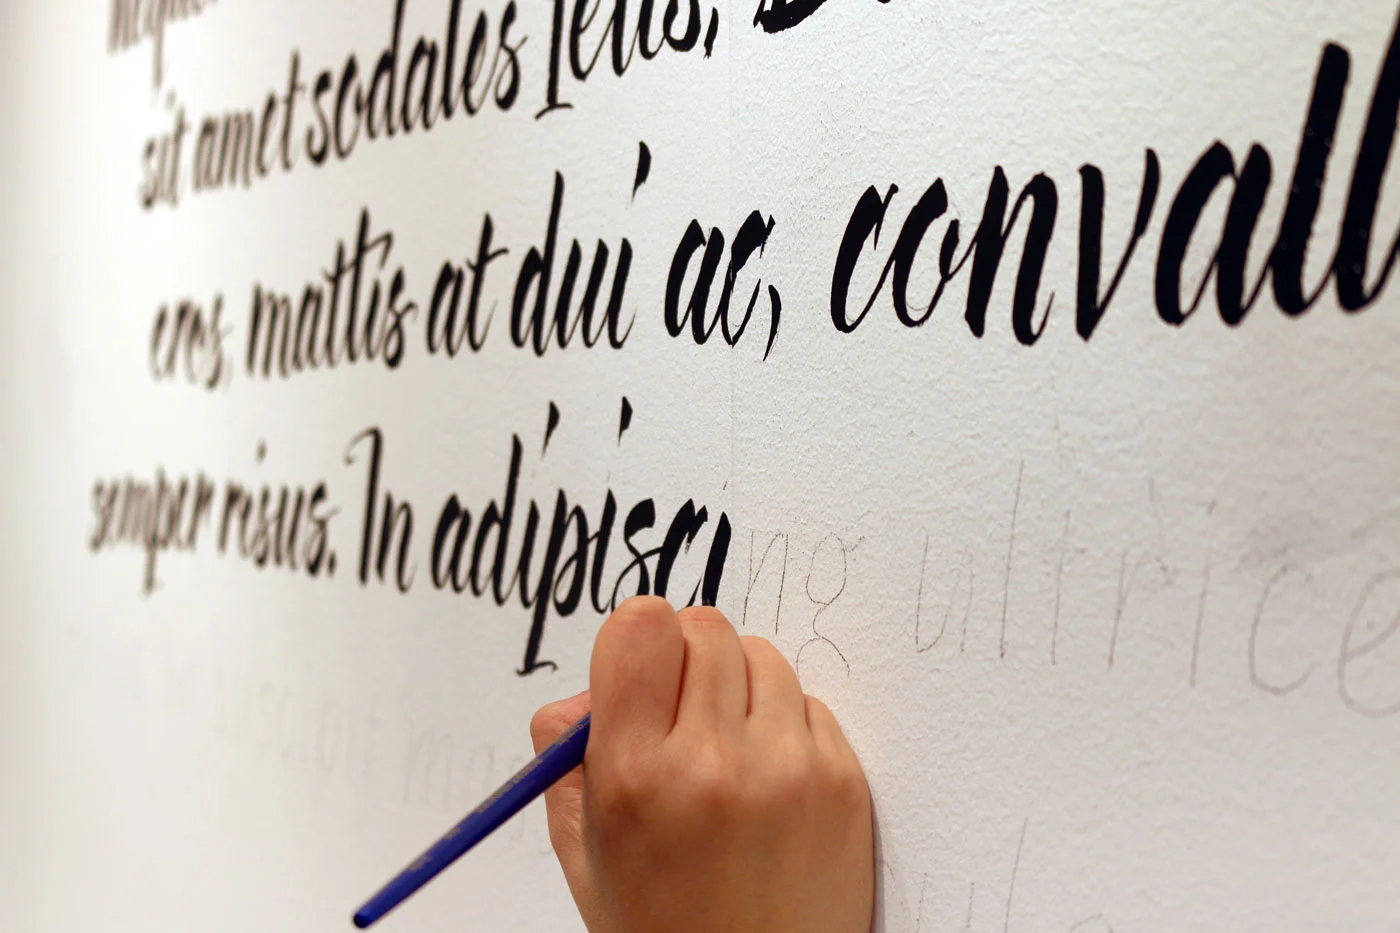 neque
sit amet sodales felis,
eros, mattis at dui ac, convall
semper risus. In adipiscing ultrice